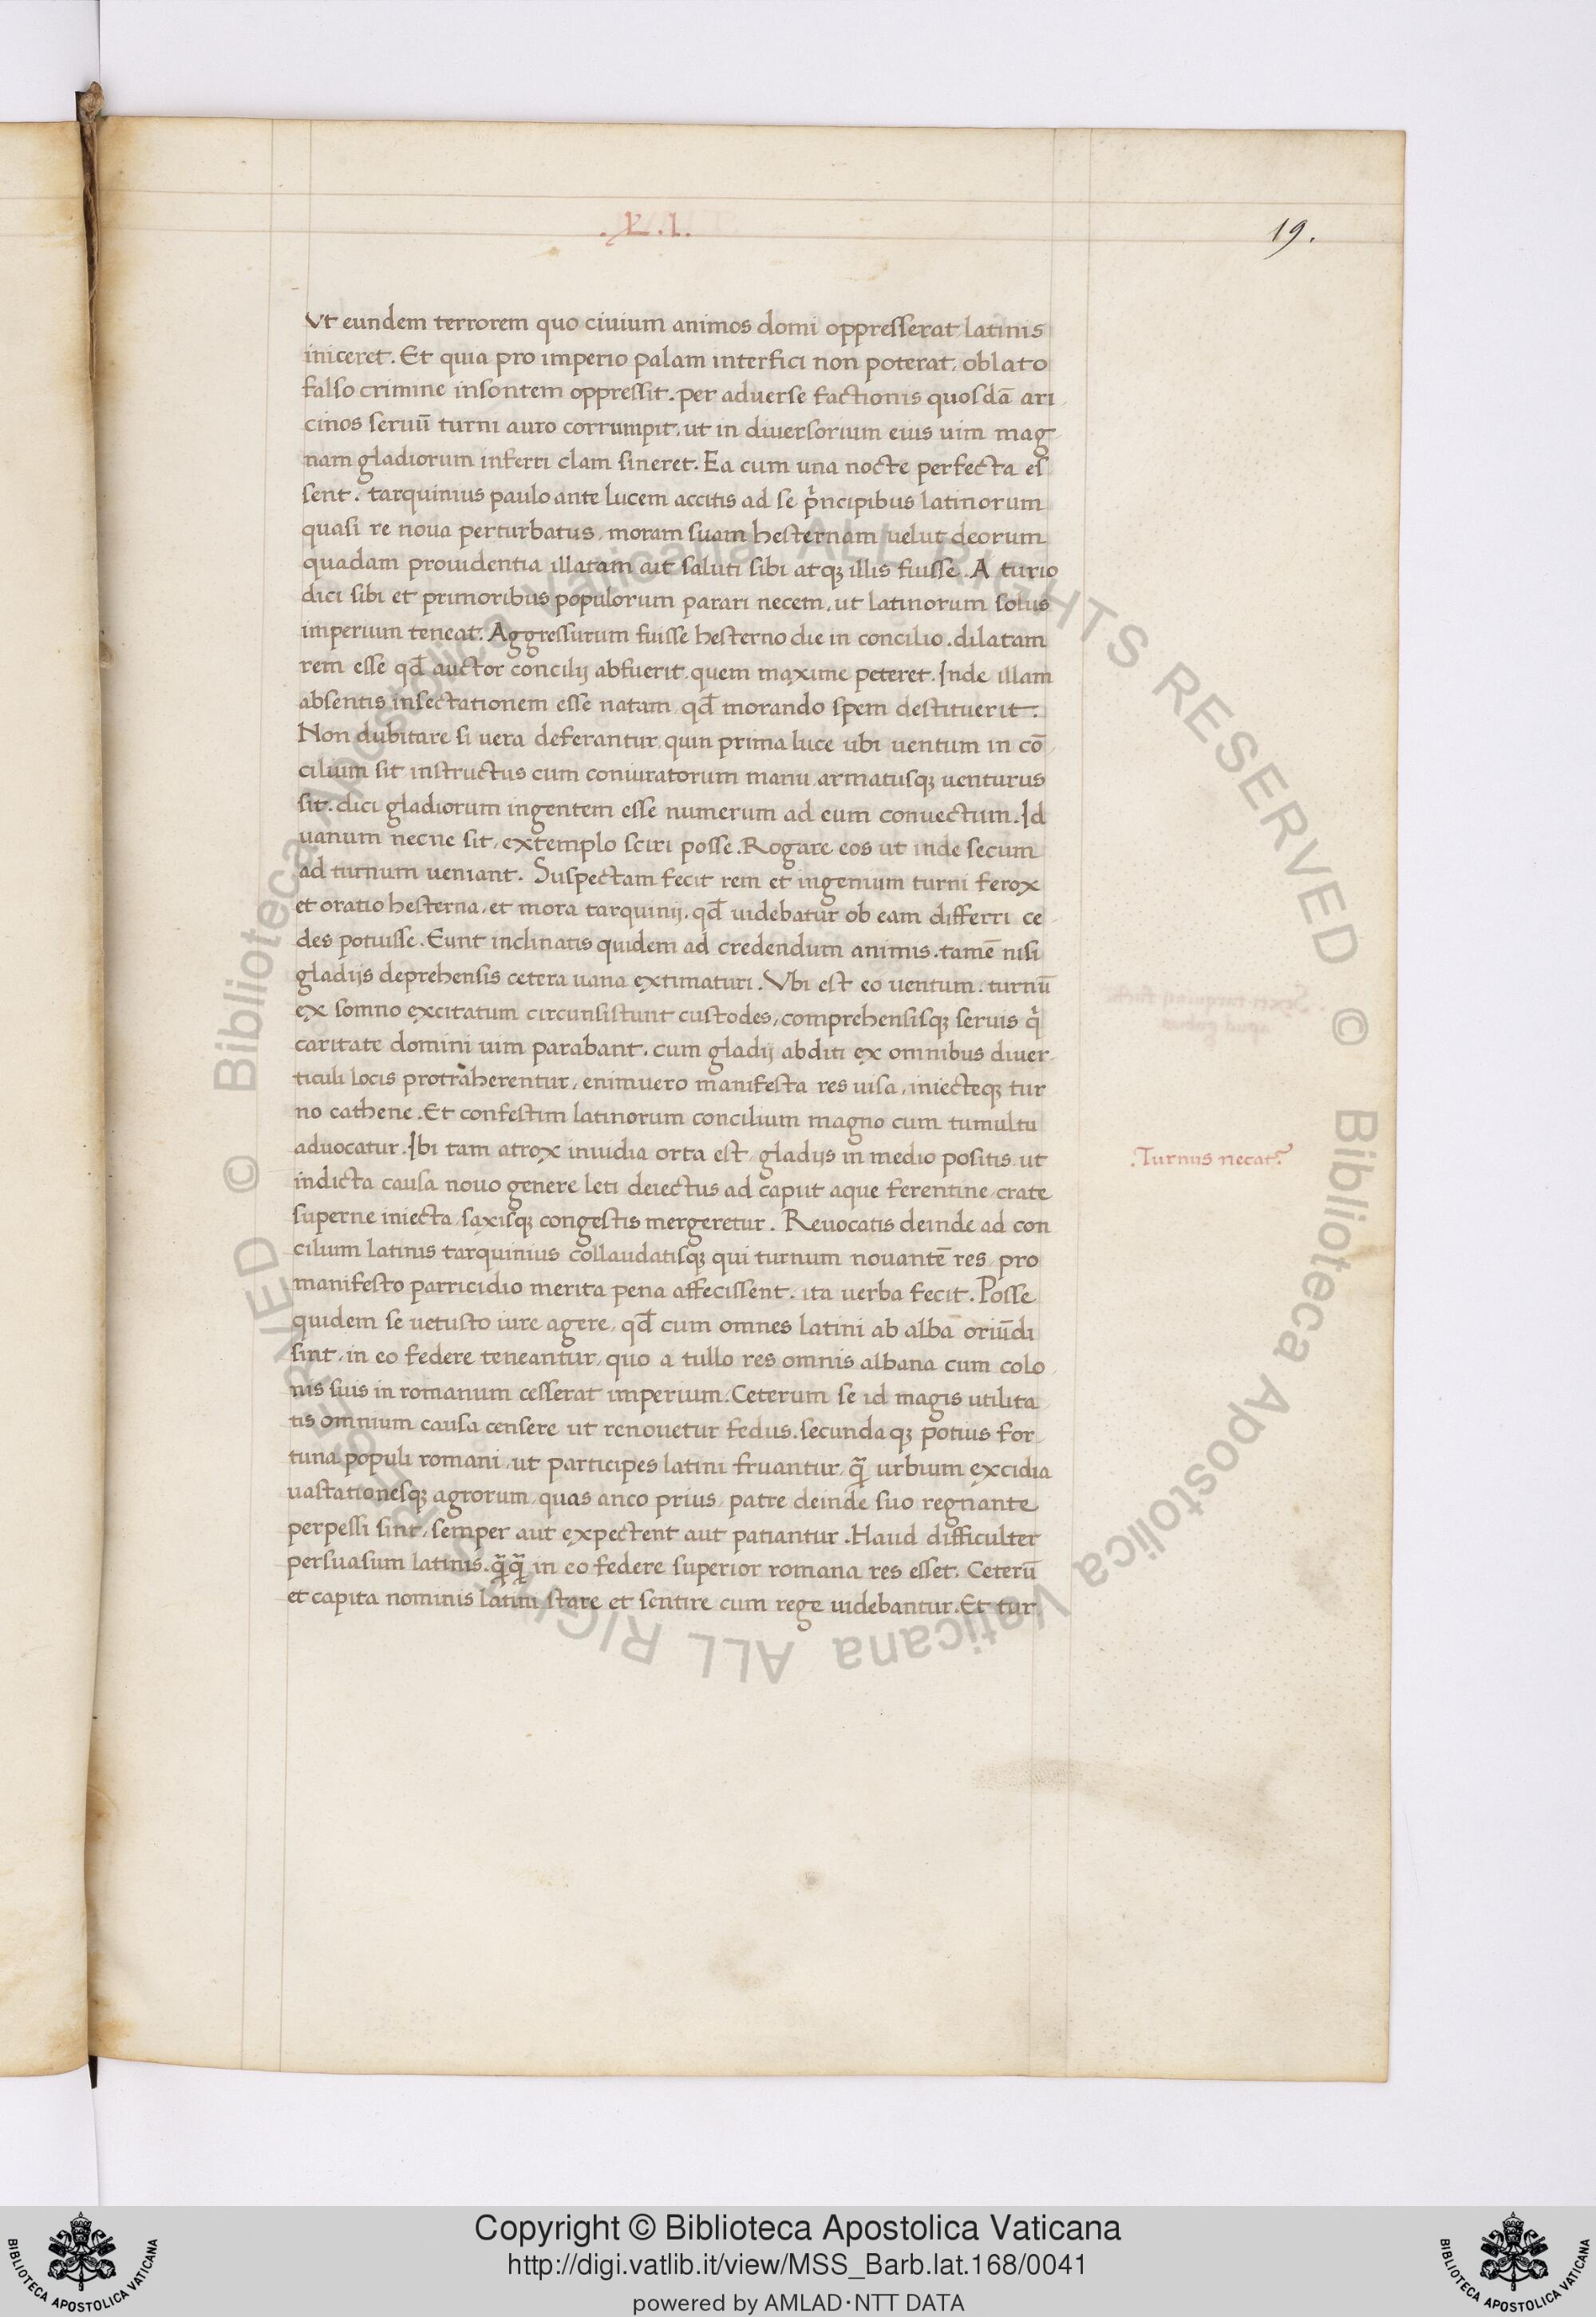 .L.I.
19.
Vt eundem terrorem quo ciuium animos domi oppresserat latinis
iniceret. Et quia pro imperio palam interfici non poterat, oblato
falso crimine insontem oppressit. per aduerse factionis quosdā ari
cinos seruū turni auro corrumpit, ut in diuersorium eius uim mag
nam gladiorum inferri clam sineret. Ea cum una nocte perfecta es
sent. tarquinius paulo ante lucem accitis ad se pͥncipibus latinorum
quasi re noua perturbatus, moram suam hesternam uelut deorum
quadam prouidentia illatam ait saluti sibi atqꝫ illis fuisse. A turio
dici sibi et primoribus populorum parari necem, ut latinorum solus
imperium teneat. Aggressurum fuisse hesterno die in concilio. dilatam
rem esse qđ auctor concilij abfuerit, quem maxime peteret. Inde illam
absentis insectationem esse natam, qđ morando spem destituerit.
Non dubitare si uera deferantur, quin prima luce ubi uentum in cō
cilium sit instructus cum coniuratorum manu armatusqꝫ uenturus
sit. dici gladiorum ingentem esse numerum ad eum conuectum. Id
uanum necne sit, extemplo sciri posse. Rogare eos ut inde secum
ad turnum ueniant. Suspectam fecit rem et ingenium turni ferox
et oratio hesterna, et mora tarquinij, qđ uidebatur ob eam differri ce
des potuisse. Eunt inclinatis quidem ad credendum animis. tamē nisi
gladijs deprehensis cetera uana extimaturi. Vbi est eo uentum. turnū
ex somno excitatum circunsistunt custodes, comprehensisqꝫ seruis qͥ
caritate domini uim parabant. cum gladij abditi ex omnibus diuer
ticuli locis protraherentur, enimuero manifesta res uisa, iniecteqꝫ tur
no cathene. Et confestim latinorum concilium magno cum tumultu
aduocatur. Ibi tam atrox inuidia orta est, gladijs in medio positis, ut
indicta causa nouo genere leti deiectus ad caput aque ferentine, crate
superne iniecta, saxisqꝫ congestis mergeretur. Reuocatis deinde ad con
cilium latinis tarquinius collaudatisqꝫ qui turnum nouantē res, pro
manifesto parricidio merita pena affecissent, ita uerba fecit. Posse
quidem se uetusto iure agere, qđ cum omnes latini ab alba oriūdi
sint, in eo federe teneantur, quo a tullo res omnis albana cum colo
nis suis in romanum cesserat imperium. Ceterum se id magis utilita
tis omnium causa censere ut renouetur fedus. secunda qꝫ potius for
tuna populi romani, ut participes latini fruantur, qꝫ̄ urbium excidia
uastationesqꝫ agrorum, quas anco prius, patre deinde suo regnante
perpessi sint, semper aut expectent aut patiantur. Haud difficulter
persuasum latinis. qꝫ̄qꝫ̄ in eo federe superior romana res esset. Ceterū
et capita nominis latini stare et sentire cum rege uidebantur. Et tur
.Turnus necat᷑
© Biblioteca Apostolica Vaticana ALL RIGHTS RESERVED © Biblioteca Apostolica Vaticana ALL RIGHTS RESERVED
Copyright © Biblioteca Apostolica Vaticana
http://digi.vatlib.it/view/MSS_Barb.lat.168/0041
powered by AMLAD·NTT DATA
BIBLIOTECA APOSTOLICA VATICANA
BIBLIOTECA APOSTOLICA VATICANA